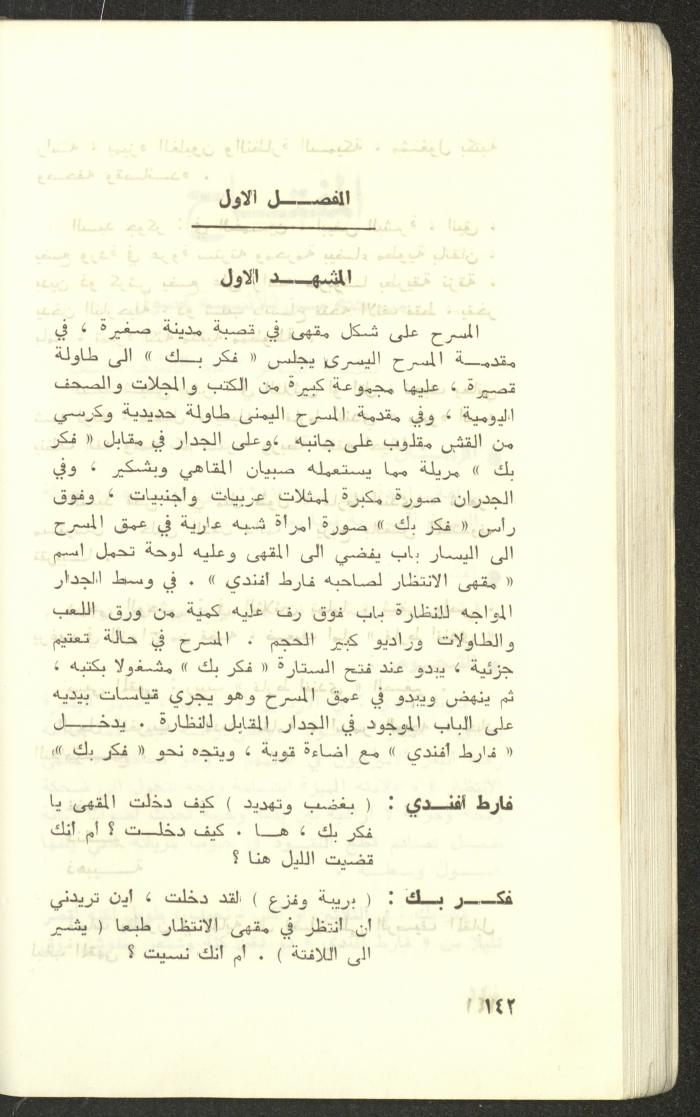 الفصل الاول
المشهد الاول
المسرح على شكل مقهى في قصبة مدينة صغيرة ، في
مقدمة المسرح اليسرى يجلس « فكر بك » الى طاولة
قصيرة ، عليها مجموعة كبيرة من الكتب والمجلات والصحف
اليومية ، وفي مقدمة المسرح اليمنى طاولة حديدية وكرسي
من القش مقلوب على جانبه ،وعلى الجدار في مقابل « فكر
بك » مريلة مما يستعمله صبيان المقاهي وبشكير ، وفي
الجدران صورة مكبرة لممثلات عربيات واجنبيات ، وفوق
رأس « فكر بك » صورة امرأة شبه عارية في عمق المسرح
الى اليسار باب يفضي الى المقهى وعليه لوحة تحمل اسم
« مقهى الانتظار لصاحبه فارط أفندي » . في وسط الجدار
المواجه للنظارة باب فوق رف عليه كمية من ورق اللعب
والطاولات وراديو كبير الحجم . المسرح في حالة تعتيم
جزئية ، يبدو عند فتح الستارة « فكر بك » مشغولا بكتبه ،
ثم ينهض ويبدو في عمق المسرح وهو يجري قياسات بيديه
على الباب الموجود في الجدار المقابل للنظارة . يدخل
« فارط أفندي » مع اضاءة قوية ، ويتجه نحو « فكر بك »
فارط أفندي : ( بغضب وتهديد ) كيف دخلت المقهى يا
فكر بك ، هـا . كيف دخلت ؟ ام أنك
قضيت الليل هنا ؟
فكر بك : ( بريبة وفزع ) لقد دخلت ، أين تريدني
ان انتظر في مقهى الانتظار طبعا ( يشير
الى اللافتة ) . ام أنك نسيت ؟
١٤٢